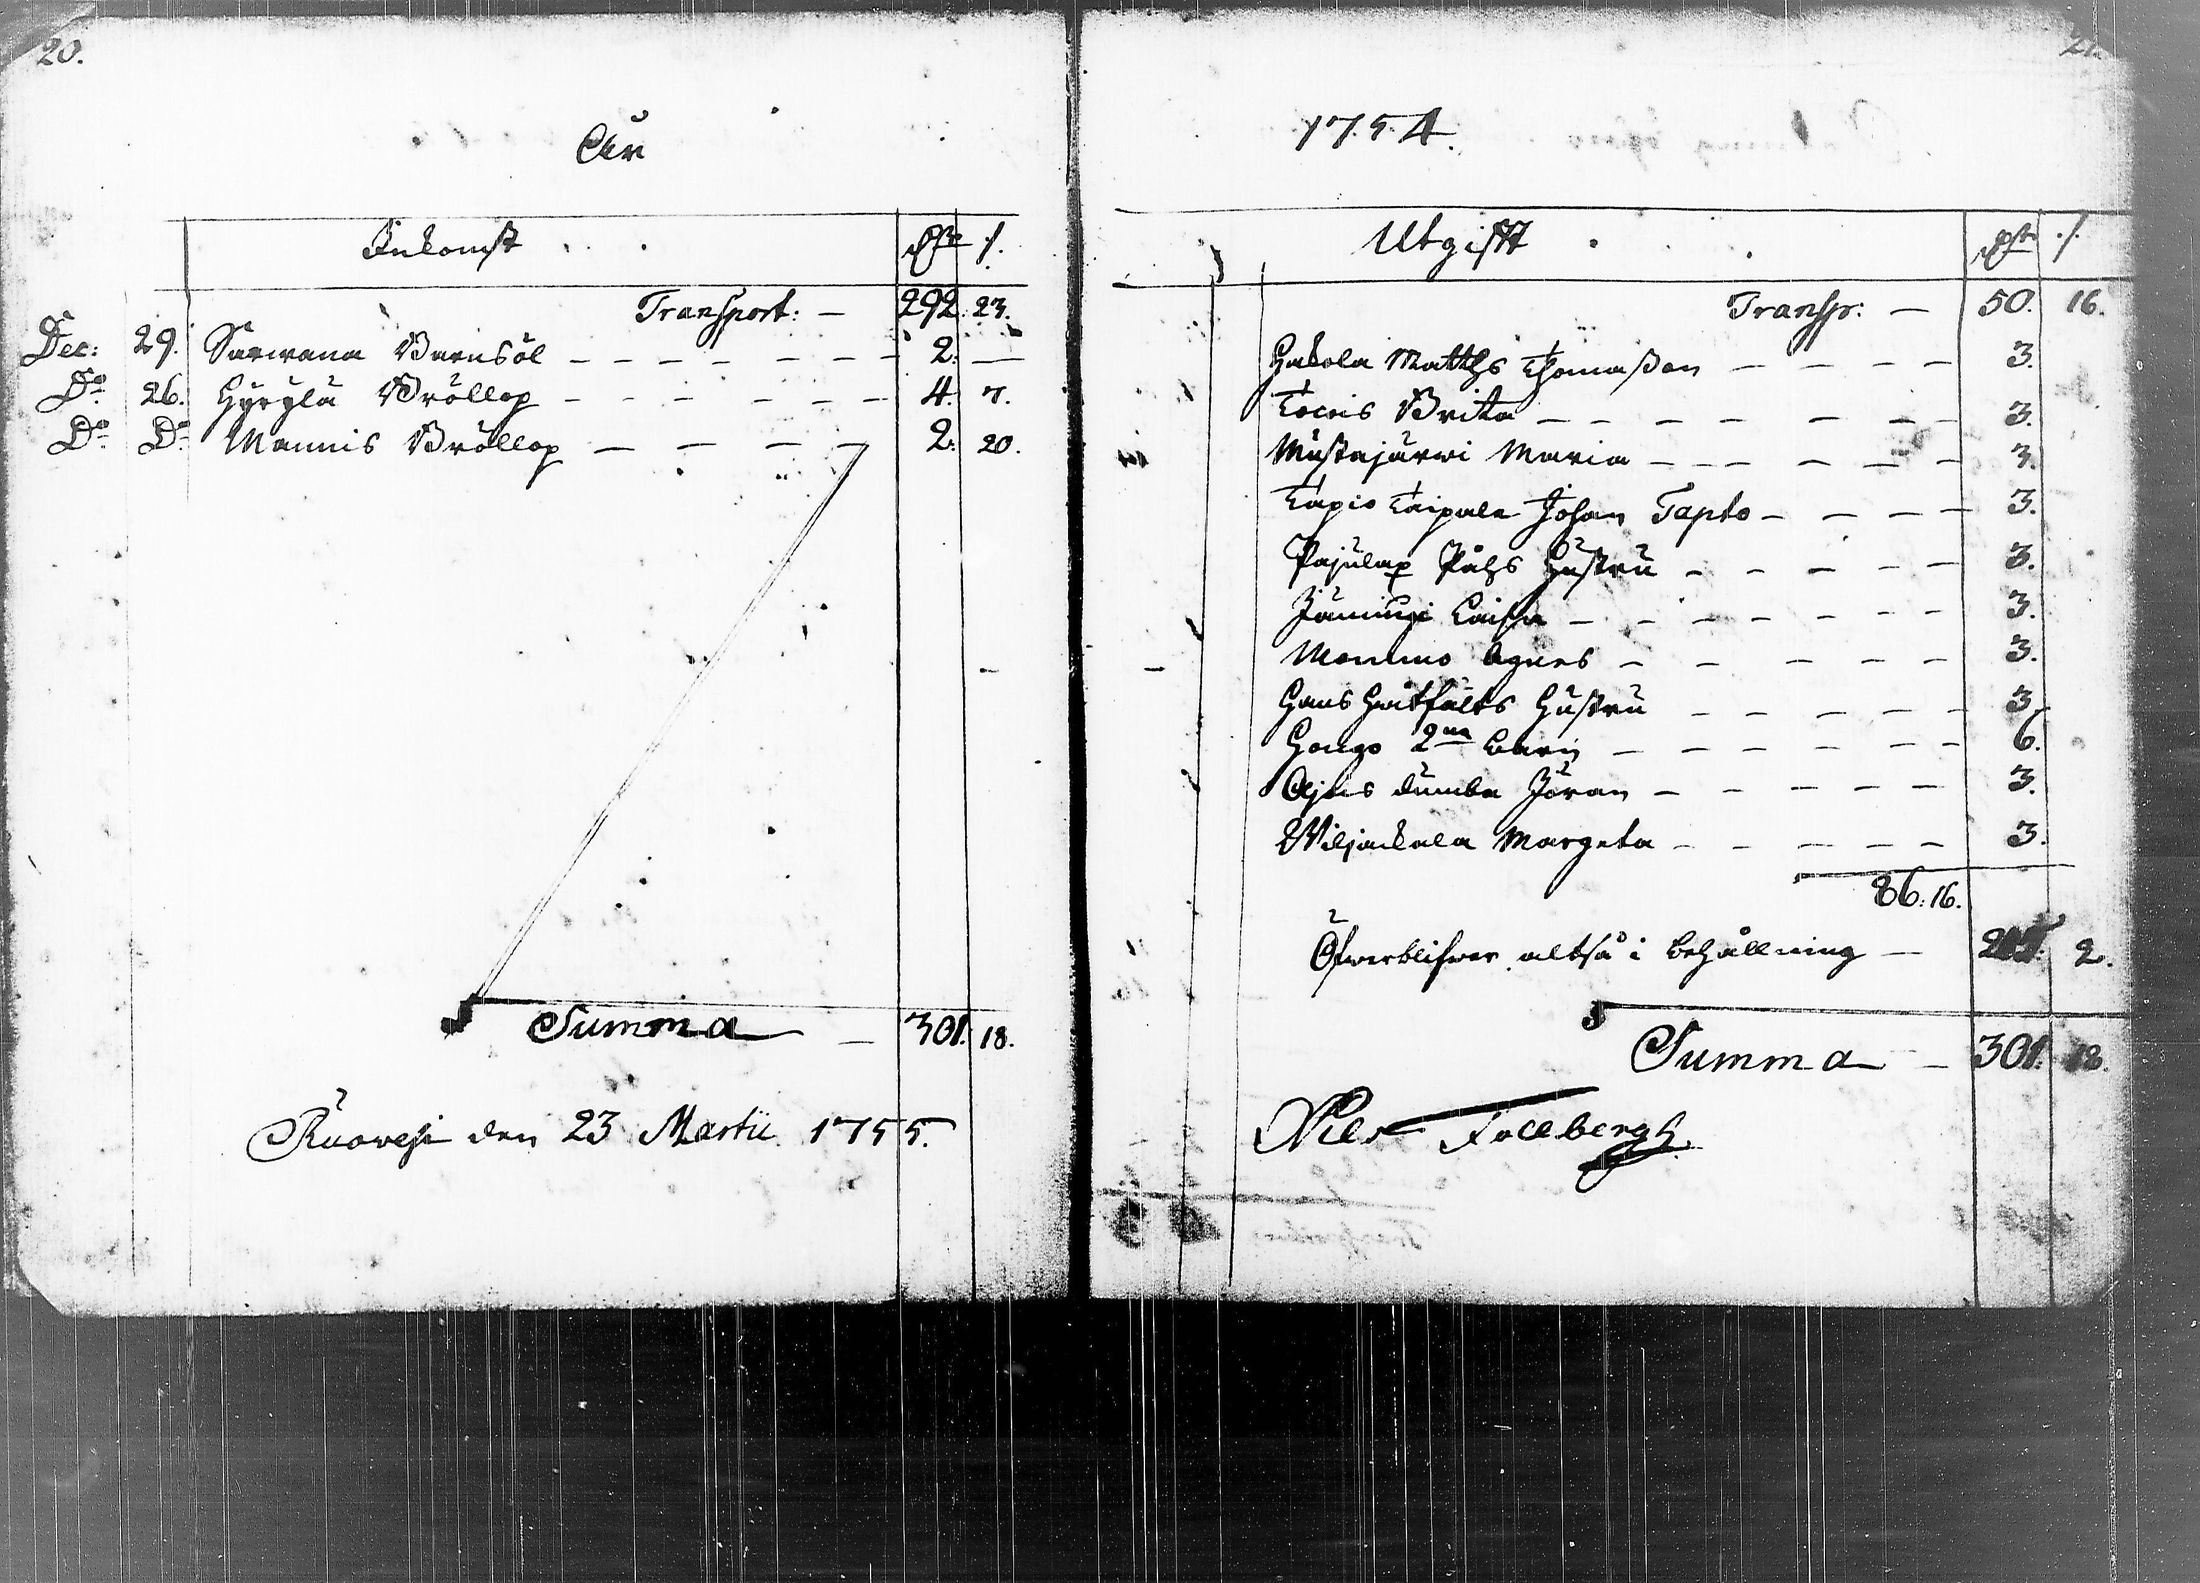 20.
Åhr
Inkomst
Transport: — 292. 23.
Dec: 29. Sarwana Barnsöl — 2: —
Do 26. Hyrylä Bröllop — 4. 7.
Do Do Mannis Bröllop — 2. 20.
Summa — 301. 18.
Ruowesi den 23 Martii 1755.
21.
1754.
Utgifft
Transpr: — 50. 16.
Hakola Matths Thomasson — 3.
Brita — 3.
Mustajärwi Maria — 3.
Tapio Taipale Johan Tapto — 3.
Påhls Hustru — 3.
Jäminki Caisa — 3.
Agnes — 3.
Hans Hwitfälts Hustru — 3.
Hongo 2ne Barn — 6.
dumbe Jöran — 3.
Wiljackala Margeta — 3.
86: 16.
Öfwerblifwer altså i behållning — 215: 2.
Summa — 301. 18.
Nils Fallbergh